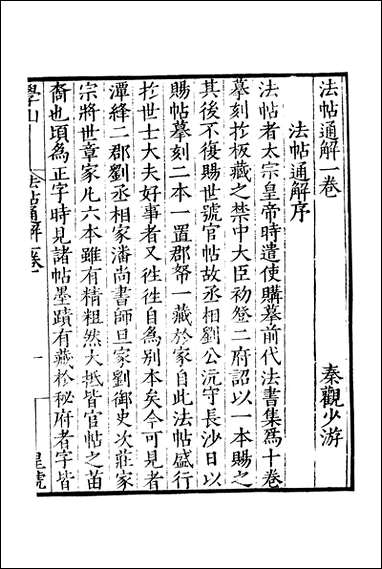 法帖通解一卷
秦觀少游
法帖通解序
法帖者太宗皇帝時遣使購摹前代法書集爲十卷
摹刻於板藏之禁中大臣初登二府詔以一本賜之
其後不復賜世號官帖故丞相劉公沆守長沙日以
賜帖摹刻二本一置郡帑一藏於家自此法帖盛行
於世士大夫好事者又徃徃自爲別本矣今可見者
潭絳二郡劉丞相家潘尚書師旦家劉御史次莊家
宗將世章家凡六本雖有精粗然大抵皆官帖之苗
裔也頃為正字時見諸帖墨蹟有藏於秘府者字皆
學山
法帖通解卷一
一